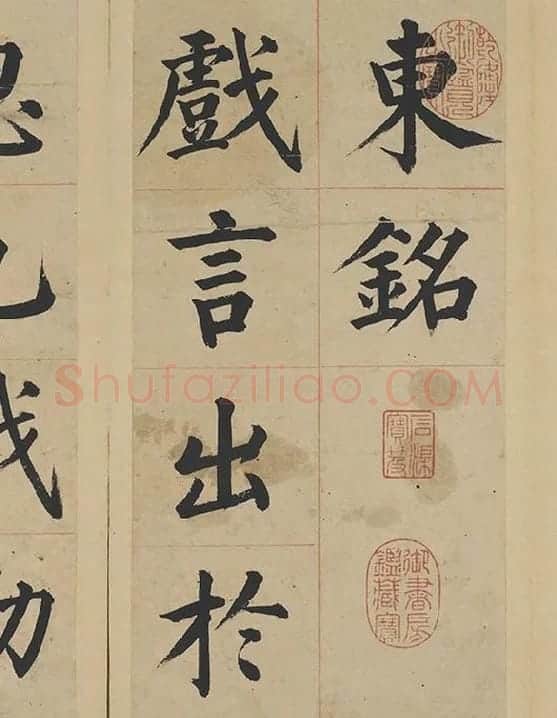 東銘
乾隆御覽之寶
石渠寶笈
御書房鑑藏寶
戲言出於
Shufaziliao.COM